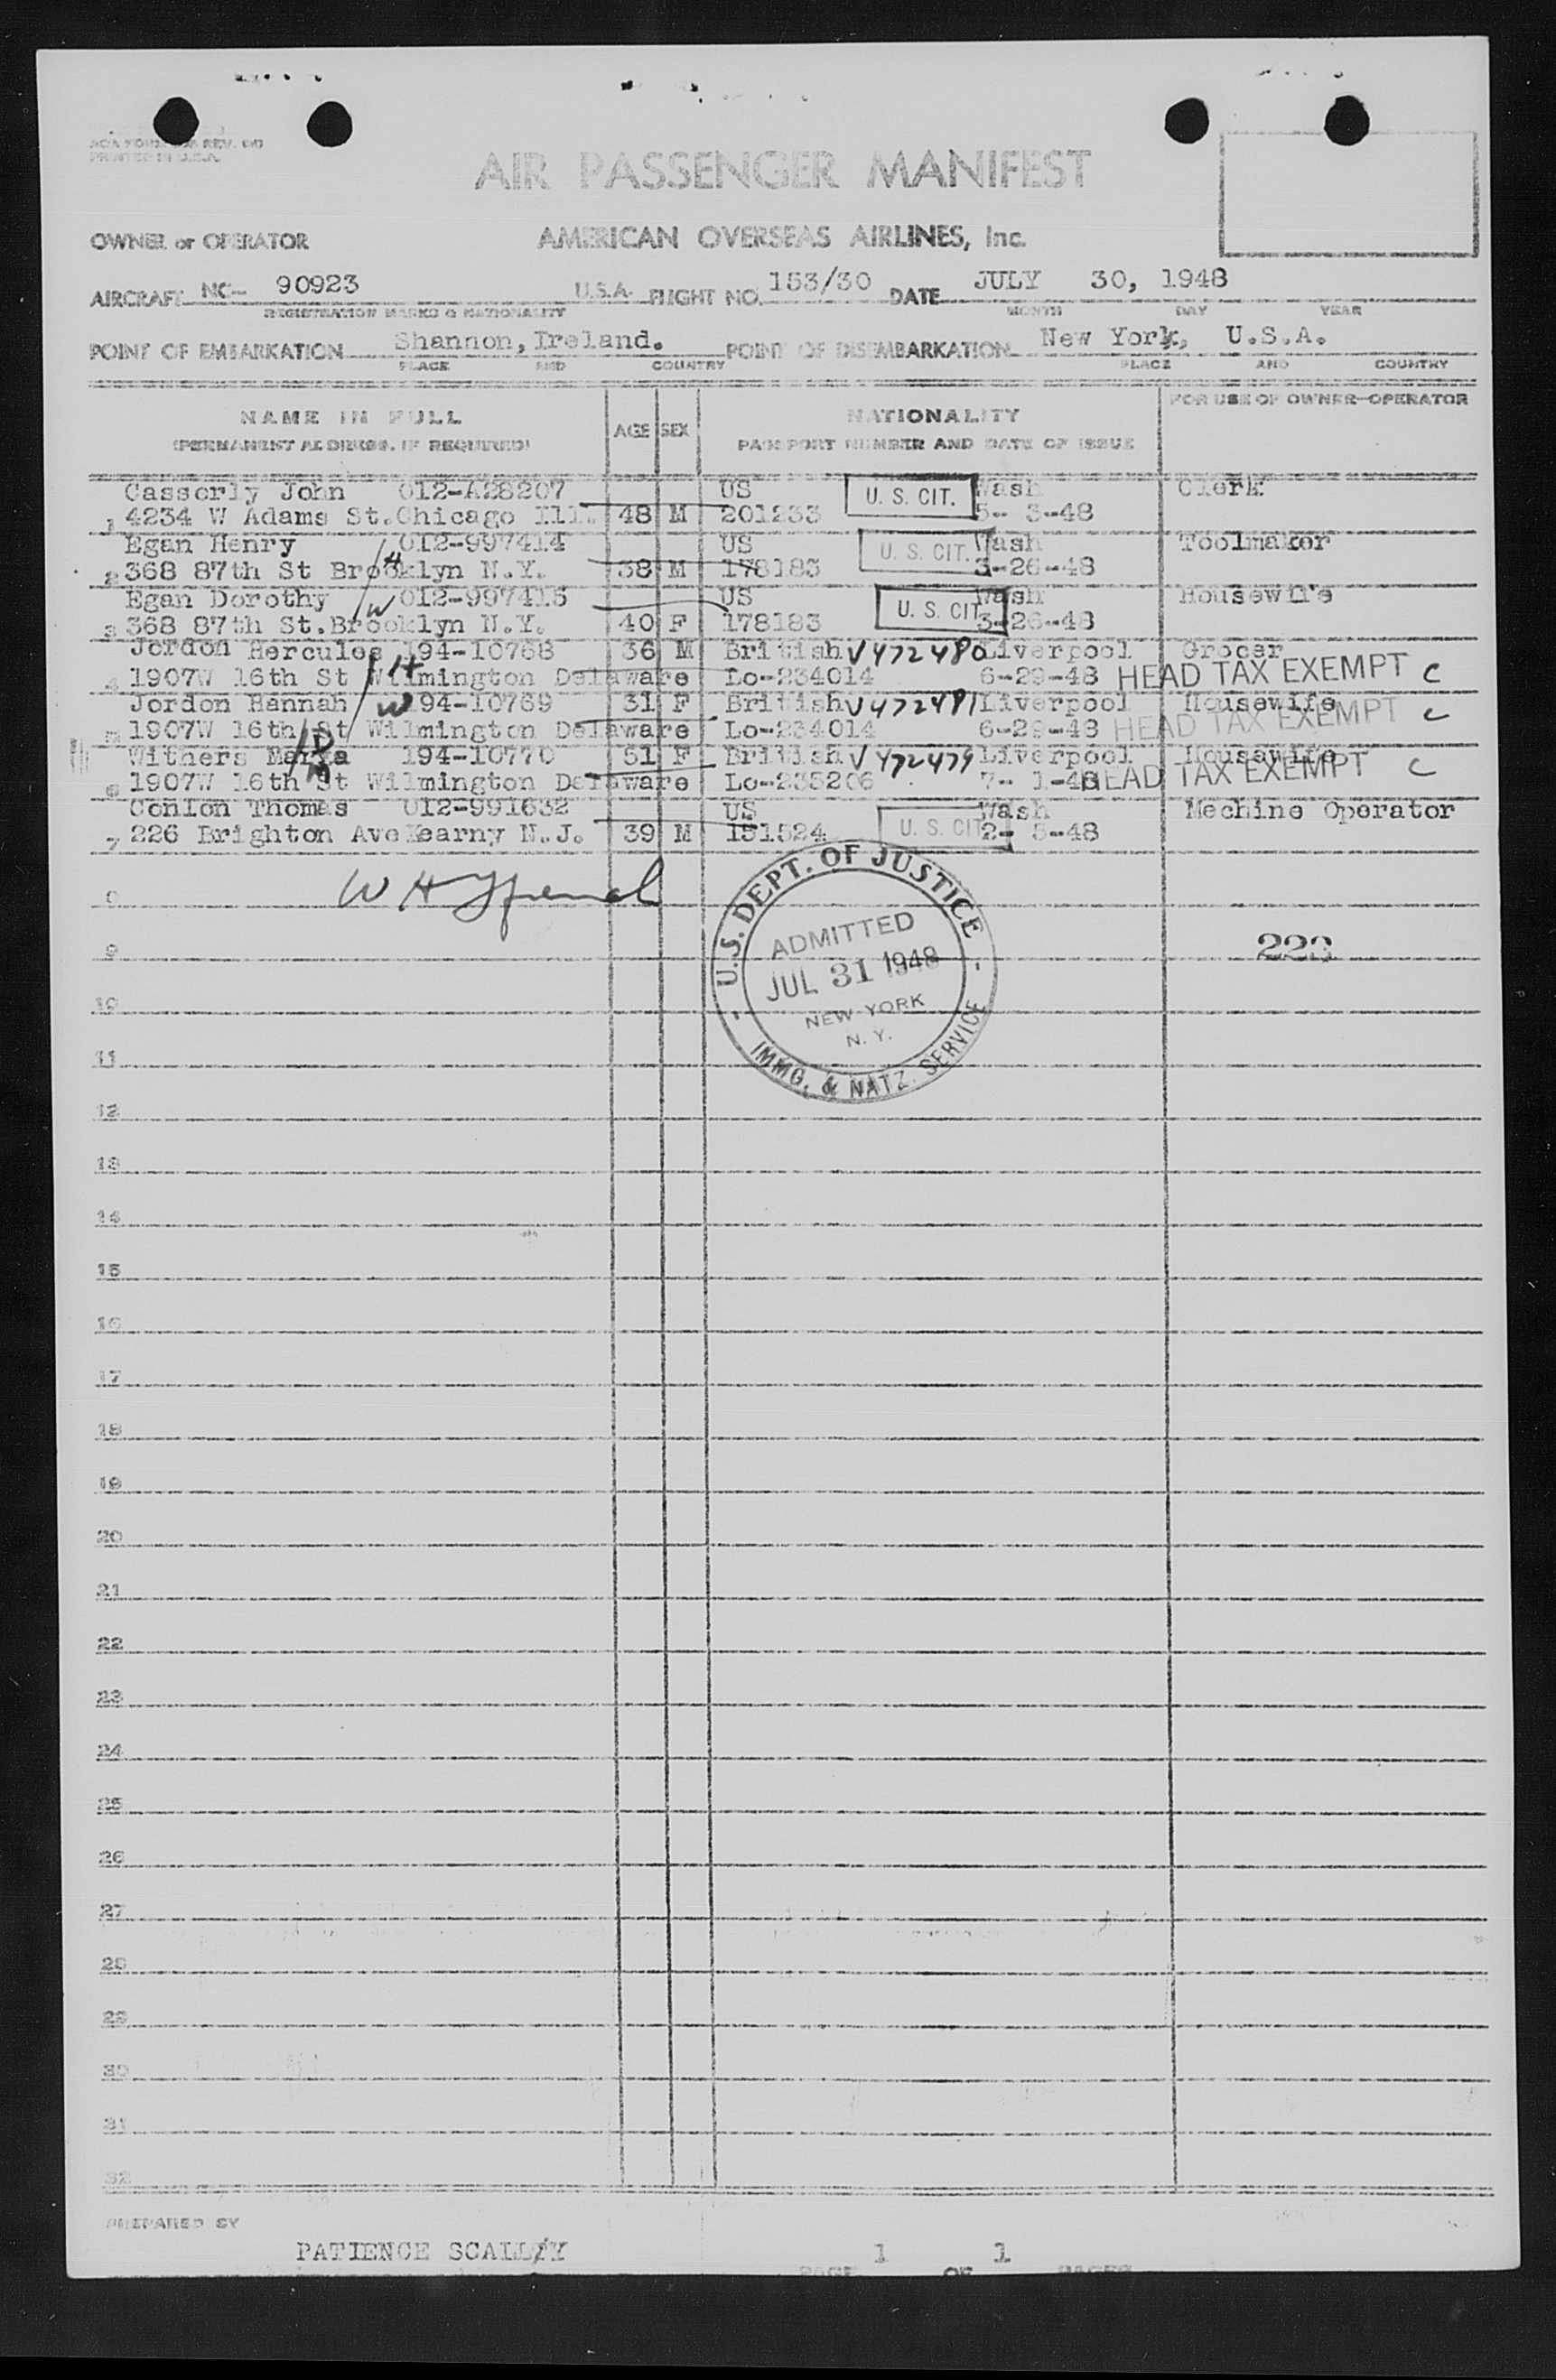 PRINTED IN U.S.A.
AIR PASSENGER MANIFEST
OWNER or OPERATOR AMERICAN OVERSEAS AIRLINES, Inc.
AIRCRAFT NC- 90923 U.S.A. FLIGHT NO. 153/30 DATE JULY 30, 1948
REGISTRATION MARKS & NATIONALITY MONTH DAY YEAR
POINT OF EMBARKATION Shannon, Ireland. POINT OF DISEMBARKATION New York, U.S.A.
PLACE AND COUNTRY PLACE AND COUNTRY
NAME IN FULL AGE SEX NATIONALITY FOR USE OF OWNER-OPERATOR
(PERMANENT ADDRESS, IF REQUIRED) PASSPORT NUMBER AND DATE OF ISSUE
Casserly John 012-A28207 US U. S. CIT. Wash Clerk
1 4234 W Adams St.Chicago Ill. 48 M 201233 5- 3-48
Egan Henry 012-997414 US U. S. CIT. Wash Toolmaker
2 368 87th St Brooklyn N.Y. H 38 M 178183 3-26-48
Egan Dorothy W 012-997415 US U. S. CIT. Wash Housewife
3 368 87th St.Brooklyn N.Y. 40 F 178183 3-26-48
Jordon Hercules 194-10768 36 M British V472480 Liverpool Grocer
4 1907W 16th St Wilmington Delaware H Lo-234014 6-29-48 HEAD TAX EXEMPT C
Jordon Hannah W 194-10769 31 F British V472481 Liverpool Housewife
5 1907W 16th St Wilmington Delaware Lo-234014 6-29-48 HEAD TAX EXEMPT C
Withers 194-10770 51 F British V472479 Liverpool Housewife
6 1907W 16th St Wilmington Delaware Lo-235206 7- 1-48 HEAD TAX EXEMPT C
Conlon Thomas 012-991632 US U. S. CIT. Wash Mechine Operator
7 226 Brighton Ave Kearny N.J. 39 M 151524 2- 5-48
U.S. DEPT. OF JUSTICE
ADMITTED
JUL 31 1948
NEW YORK
N. Y.
IMMG. & NATZ. SERVICE
9
10
11
12
13
14
15
16
17
18
19
20
21
22
23
24
25
26
27
28
29
30
31
32
PREPARED BY
PATIENCE SCALLY
PAGE 1 OF 1 PAGES